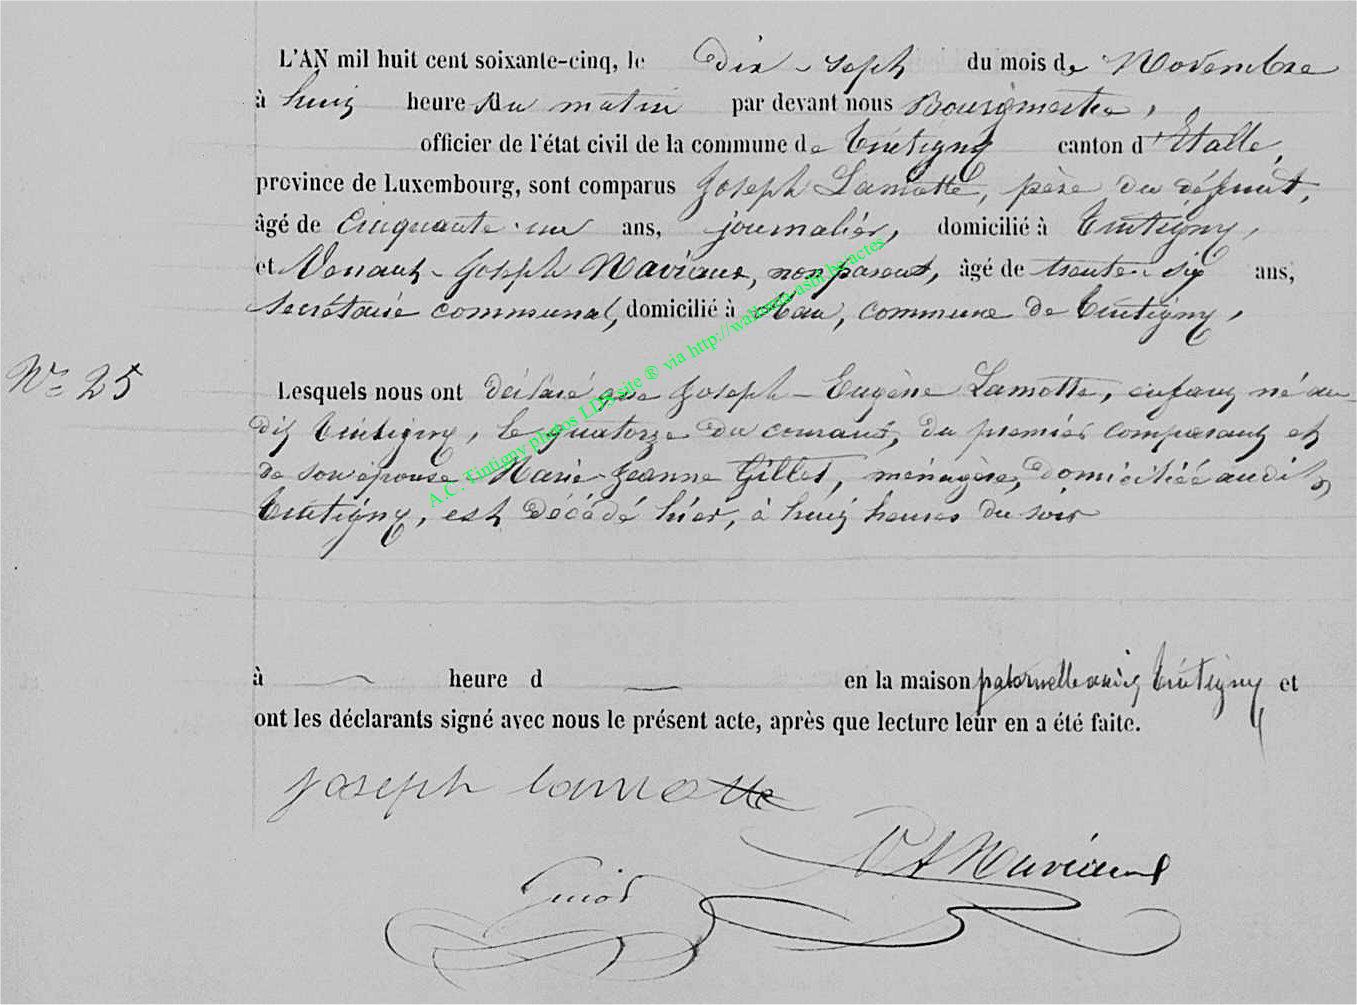 L'AN mil huit cent soixante-cinq, le Dix-sept du mois de Novembre
à huit heure du matin par devant nous Bourgmestre,
officier de l'état civil de la commune de Tintigny canton d'Etalle,
province de Luxembourg, sont comparus Joseph Lamotte, père du défunt,
âgé de Cinquante-un ans, journalier, domicilié à Tintigny,
et Venant-Joseph Naviaux, non parent, âgé de trente-six ans,
Secrétaire communal, domicilié à Han, commune de Tintigny,
N° 25
Lesquels nous ont déclaré que Joseph-Eugène Lamotte, enfant né au-
dit Tintigny, le quatorze du courant, du premier comparant et
de son épouse Marie-Jeanne Gillet, ménagère, domiciliée audit
Tintigny, est décédé hier, à huit heures du soir
à heure d en la maison paternelle audit Tintigny et
ont les déclarants signé avec nous le présent acte, après que lecture leur en a été faite.
joseph lamotte
Naviaux
A.C. Tintigny photos LDS site ® via http://wallonia-asbl.be/actes